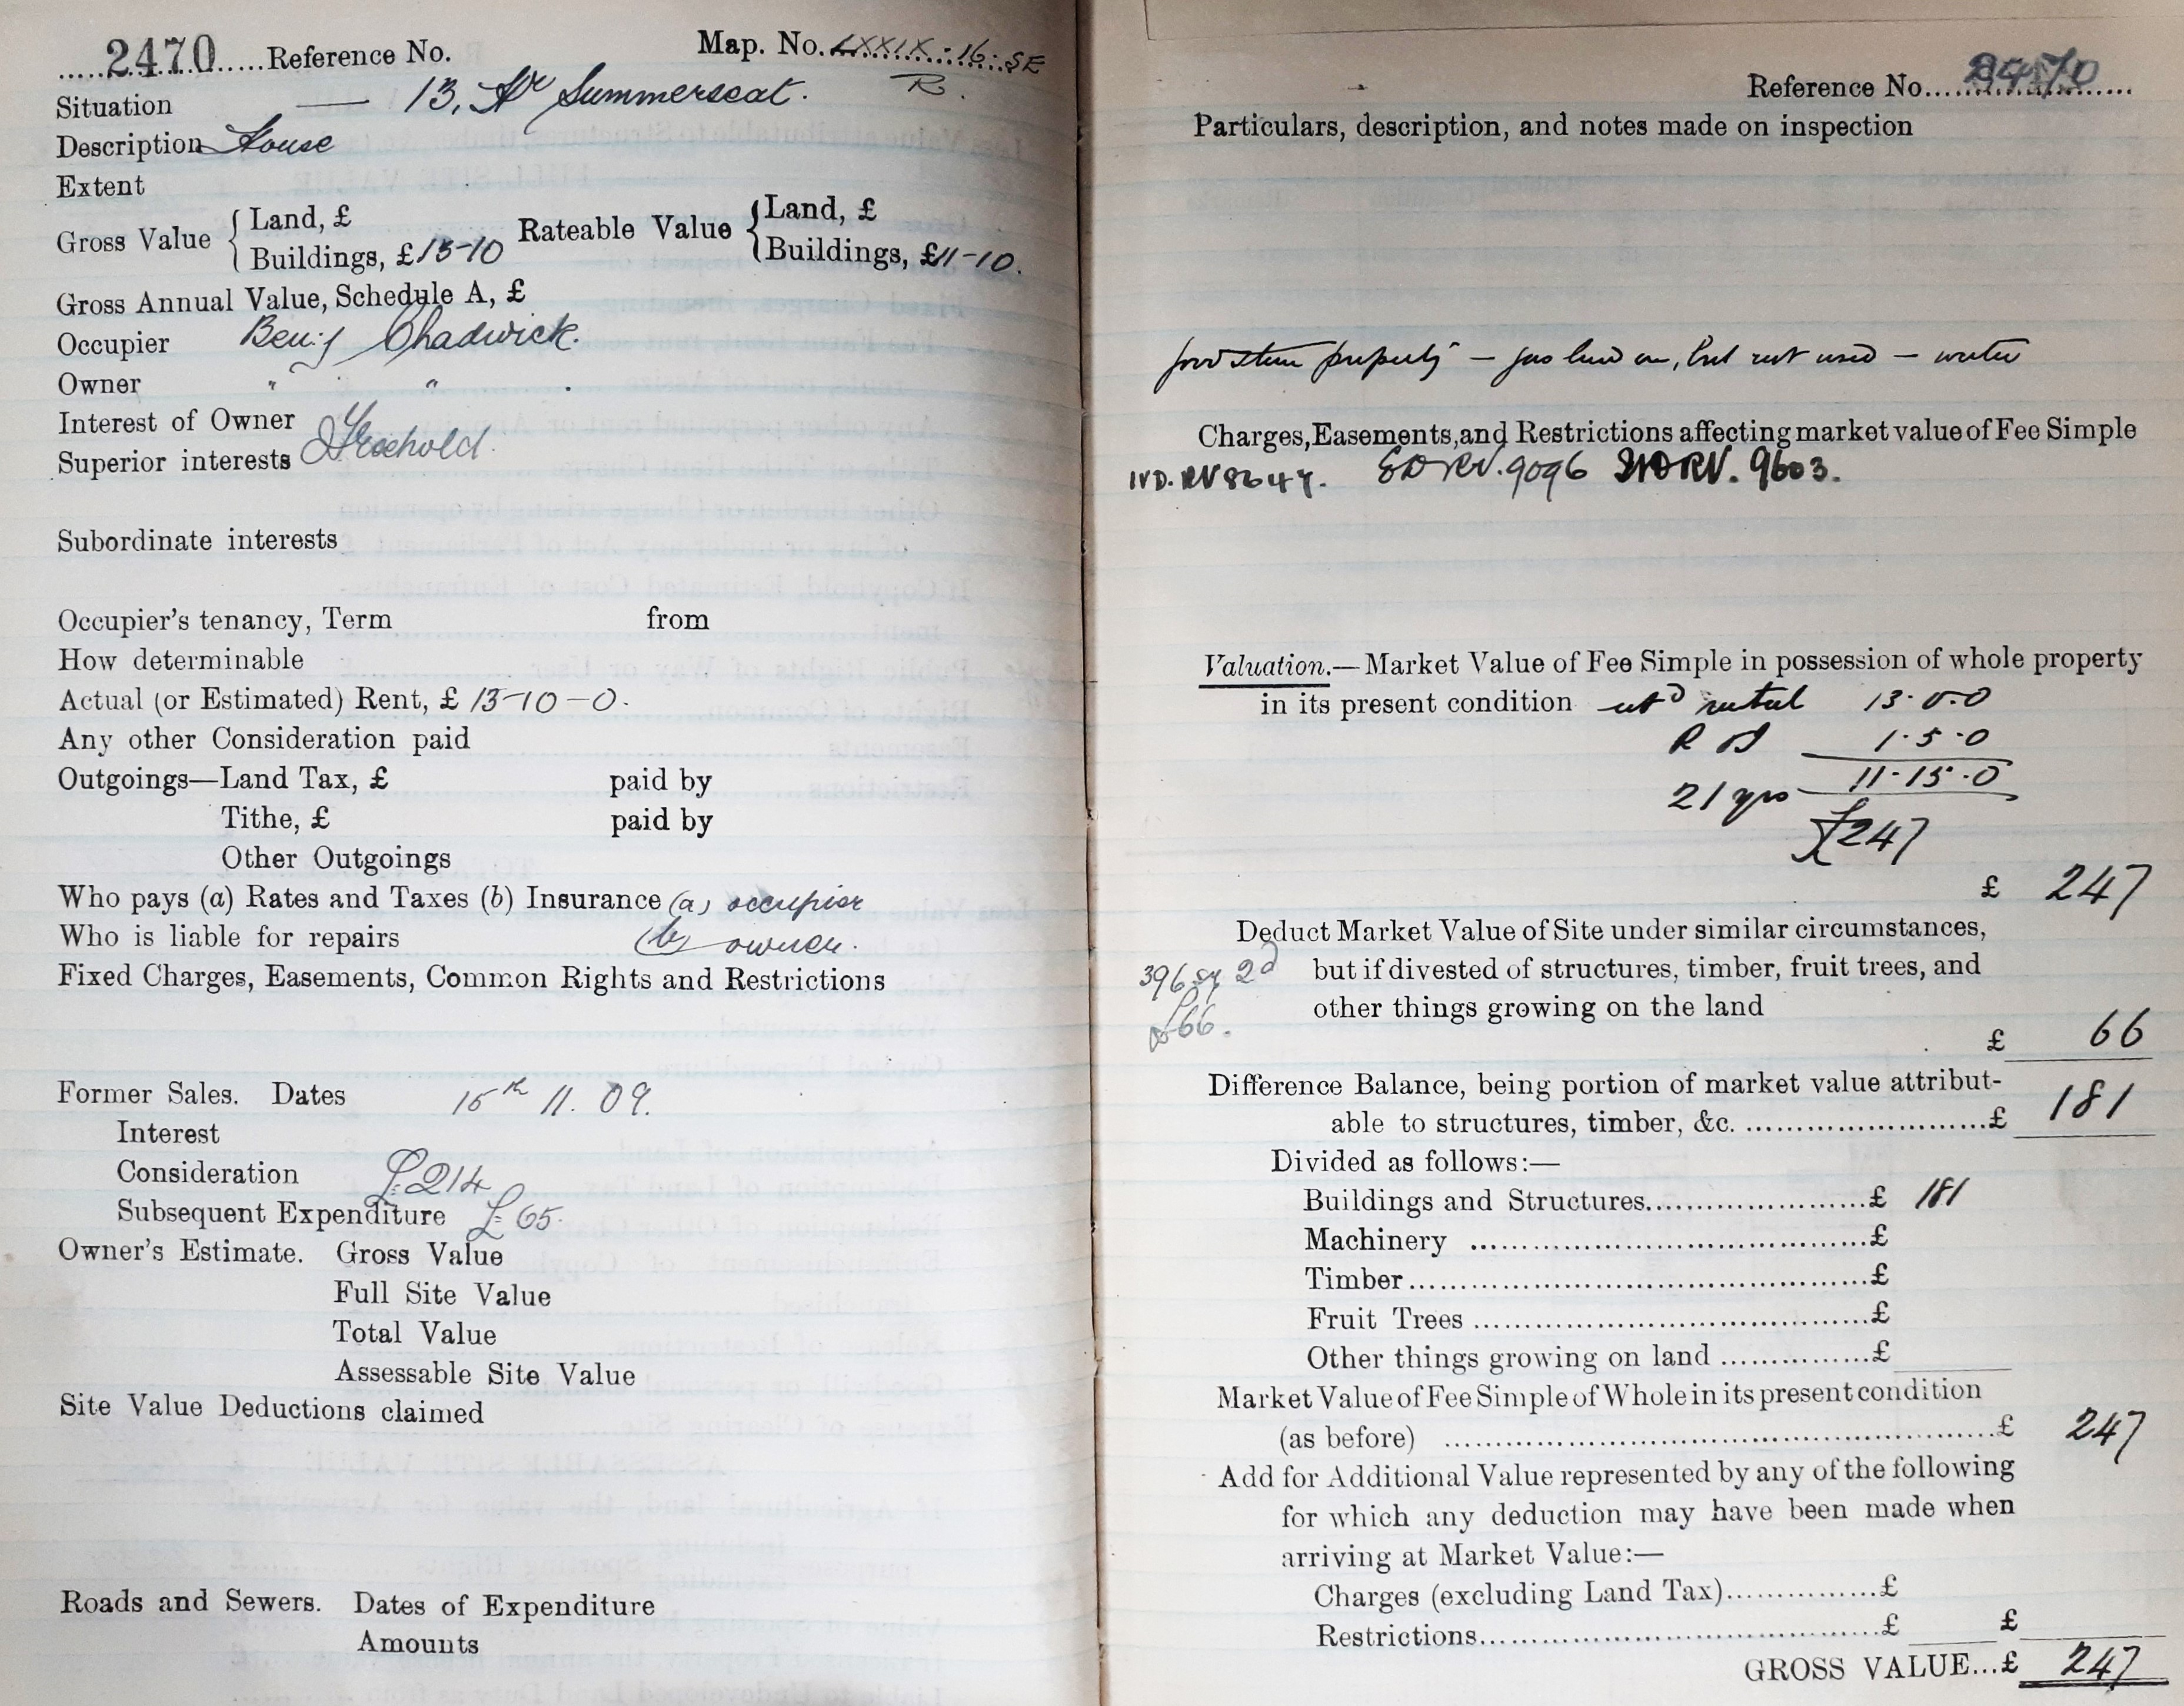 2470 Reference No. Map. No. LXXIX . 16. SE
Situation — 13, Hr Summerseat. R.
Description House
Extent
Gross Value { Land, £
Buildings, £13-10
Rateable Value { Land, £
Buildings, £11-10.
Gross Annual Value, Schedule A, £
Occupier Benj Chadwick.
Owner " " .
Interest of Owner Freehold
Superior interests
Subordinate interests
Occupier's tenancy, Term from
How determinable
Actual (or Estimated) Rent, £ 13-10-0.
Any other Consideration paid
Outgoings—Land Tax, £ paid by
Tithe, £ paid by
Other Outgoings
Who pays (a) Rates and Taxes (b) Insurance (a) occupier
Who is liable for repairs (b) owner.
Fixed Charges, Easements, Common Rights and Restrictions
Former Sales. Dates 15th 11. 09.
Interest
Consideration £214
Subsequent Expenditure £65.
Owner's Estimate. Gross Value
Full Site Value
Total Value
Assessable Site Value
Site Value Deductions claimed
Roads and Sewers. Dates of Expenditure
Amounts
Reference No. 2470
Particulars, description, and notes made on inspection
good stone property — gas laid on, but not used — water
Charges, Easements, and Restrictions affecting market value of Fee Simple
IVD. RV 8647. RV. 9096 RV. 9603.
Valuation.—Market Value of Fee Simple in possession of whole property
in its present condition estd rental 13.0.0
1.5.0
11.15.0
21 yrs
£247
£ 247
Deduct Market Value of Site under similar circumstances,
396 sy 2d but if divested of structures, timber, fruit trees, and
£66. other things growing on the land
£ 66
Difference Balance, being portion of market value attribut-
able to structures, timber, &c. £ 181
Divided as follows:—
Buildings and Structures £ 181
Machinery £
Timber £
Fruit Trees £
Other things growing on land £
Market Value of Fee Simple of Whole in its present condition
(as before) £ 247
Add for Additional Value represented by any of the following
for which any deduction may have been made when
arriving at Market Value:—
Charges (excluding Land Tax) £
Restrictions £ £
GROSS VALUE...£ 247